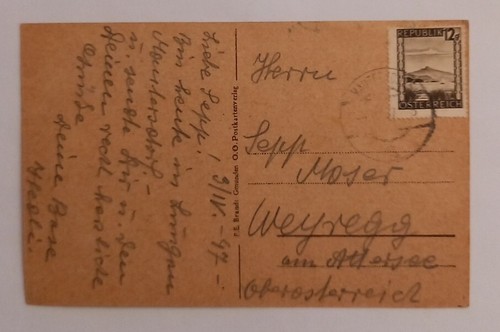 Liebe Sepp! 9/IV.-47-
Bin heute in
u. sende Dir u. den
Deinen recht herzliche
Grüße
Deine Base
P.E. Brandt Gmunden O.Ö. Postkartenverlag
REPUBLIK
12 g
ÖSTERREICH
Herrn
Sepp
Moser
Weyregg
am Attersee
Oberösterreich